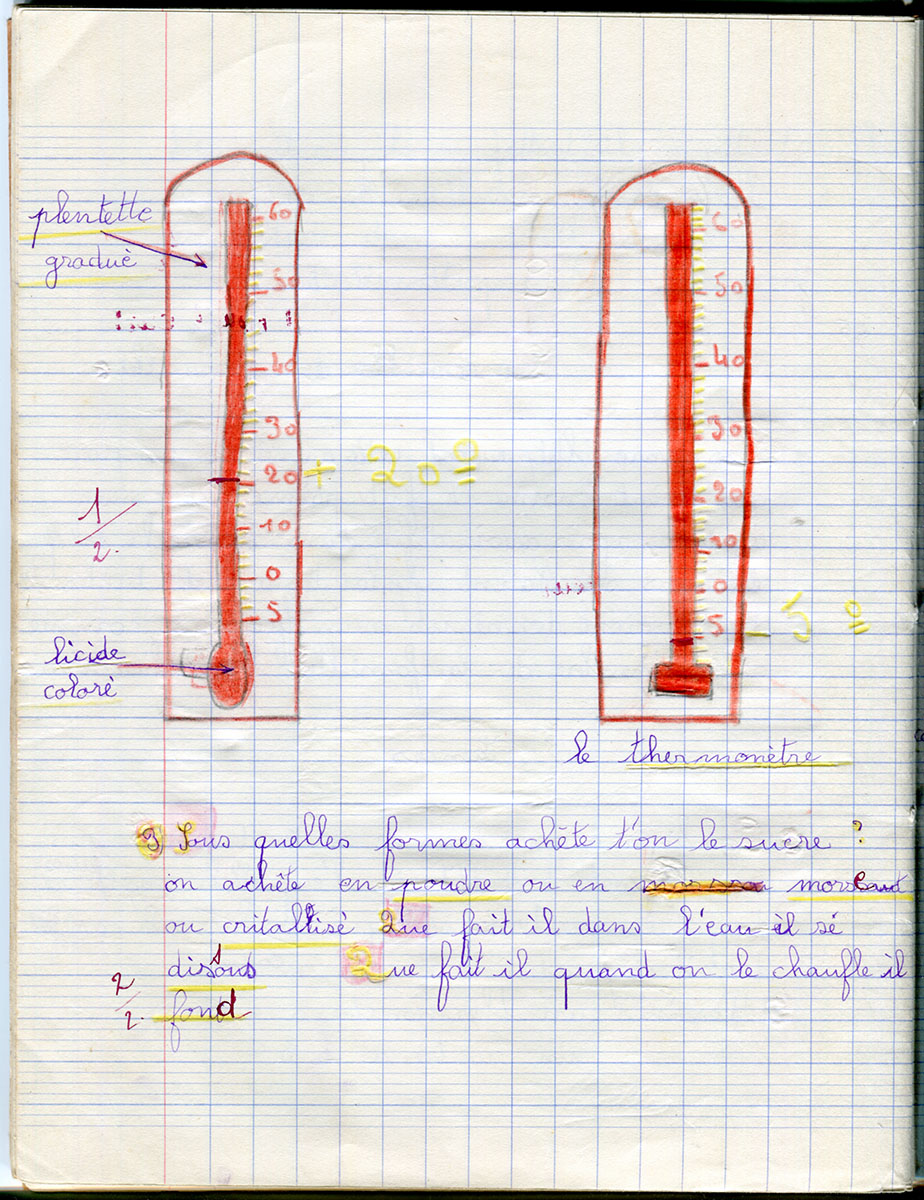 plentette
graduè
60
50
40
30
20
10
0
5
+ 20º
1/2
licide
coloré
60
50
40
30
20
10
0
5
- 5º
le thermomètre
3) Sous quelles formes achête t'on le sucre ?
on achête en poudre ou en morceaux
ou critallisé Que fait il dans l'eau il sé
dissous Que fait il quand on le chaufle il
2/2 fond